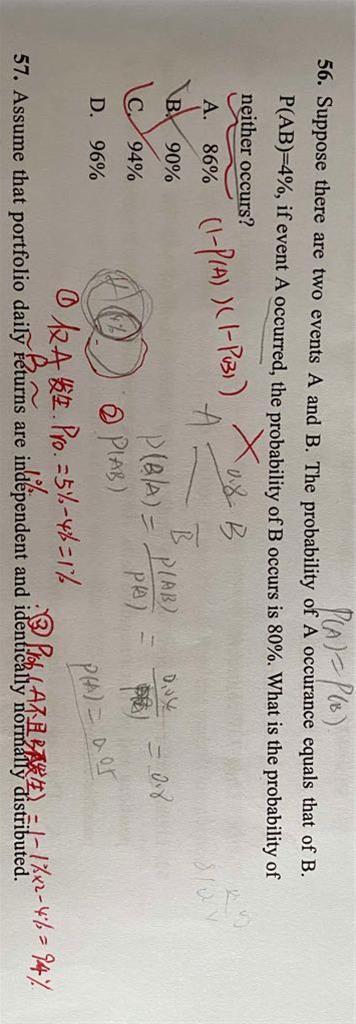 P(A)=P(B)
56. Suppose there are two events A and B. The probability of A occurance equals that of B.
P(AB)=4%, if event A occurred, the probability of B occurs is 80%. What is the probability of
neither occurs?
A. 86%
B. 90%
C. 94%
D. 96%
(1-P(A))(1-P(B)) X
A
0.8 B
B̄
P(B|A) = P(AB) / P(A) = 0.04 / P(A) = 0.8
P(A) = 0.05
A 4%
① 仅A发生. Pro. = 5%-4% = 1%
B ~ 1%
② P(AB)
③ Prob(A不且B不发生) = 1-1%×2-4% = 94%
57. Assume that portfolio daily returns are independent and identically normally distributed.